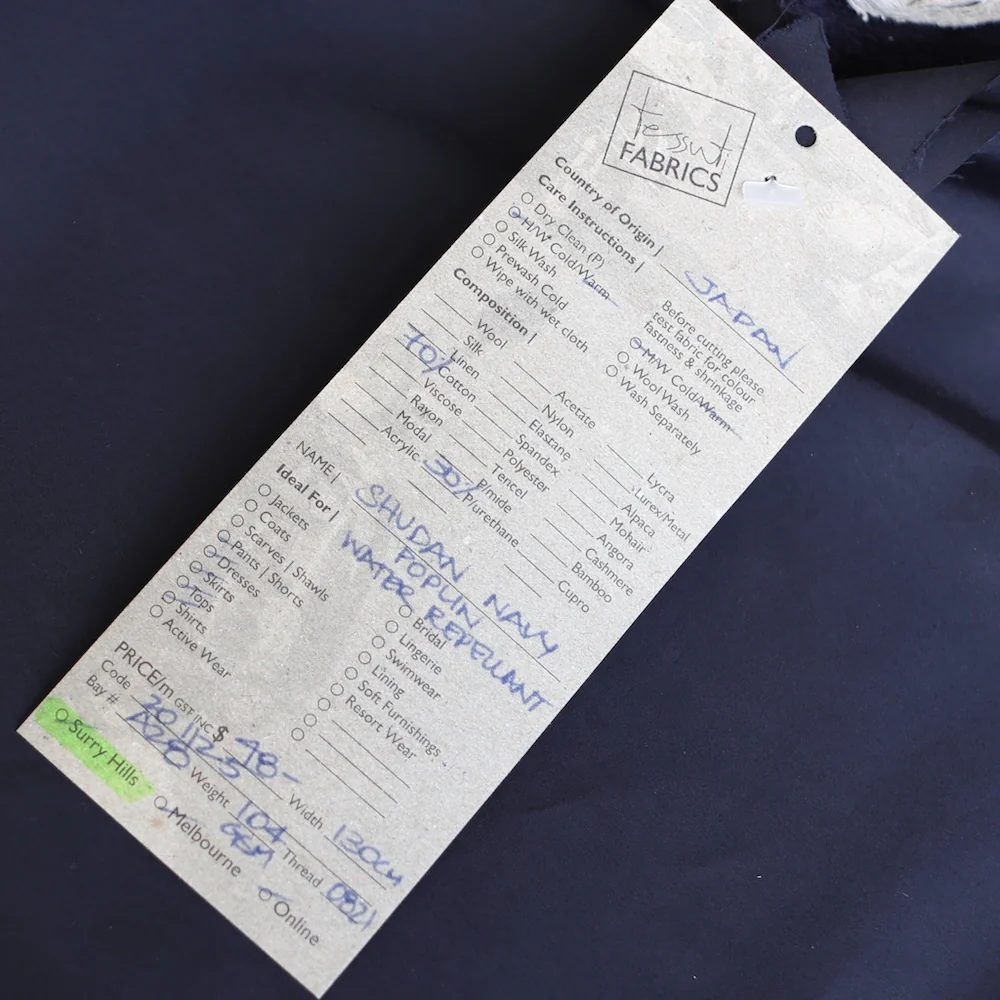 tessuti
FABRICS
Country of Origin | JAPAN
Care Instructions |
Before cutting please
test fabric for colour
fastness & shrinkage
Dry Clean (P)
H/W Cold/Warm
Silk Wash
Prewash Cold
Wipe with wet cloth
M/W Cold/Warm
Wool Wash
Wash Separately
Composition |
Wool
Silk
Linen
70% Cotton
Viscose
Rayon
Modal
Acrylic
Acetate
Nylon
Elastane
Spandex
Polyester
Tencel
30% P/mide
P/urethane
Lycra
Lurex/Metal
Alpaca
Mohair
Angora
Cashmere
Bamboo
Cupro
NAME | SHUDAN
POPLIN NAVY
WATER REPELLANT
Ideal For |
Jackets
Coats
Scarves | Shawls
Pants | Shorts
Dresses
Skirts
Tops
Shirts
Active Wear
Bridal
Lingerie
Swimwear
Lining
Soft Furnishings
Resort Wear
PRICE/m GST INC $ 48-
Code 20112-5
Width 130CM
Bay # A28
Weight 104
GSM
Thread 0821
Surry Hills
Melbourne
Online